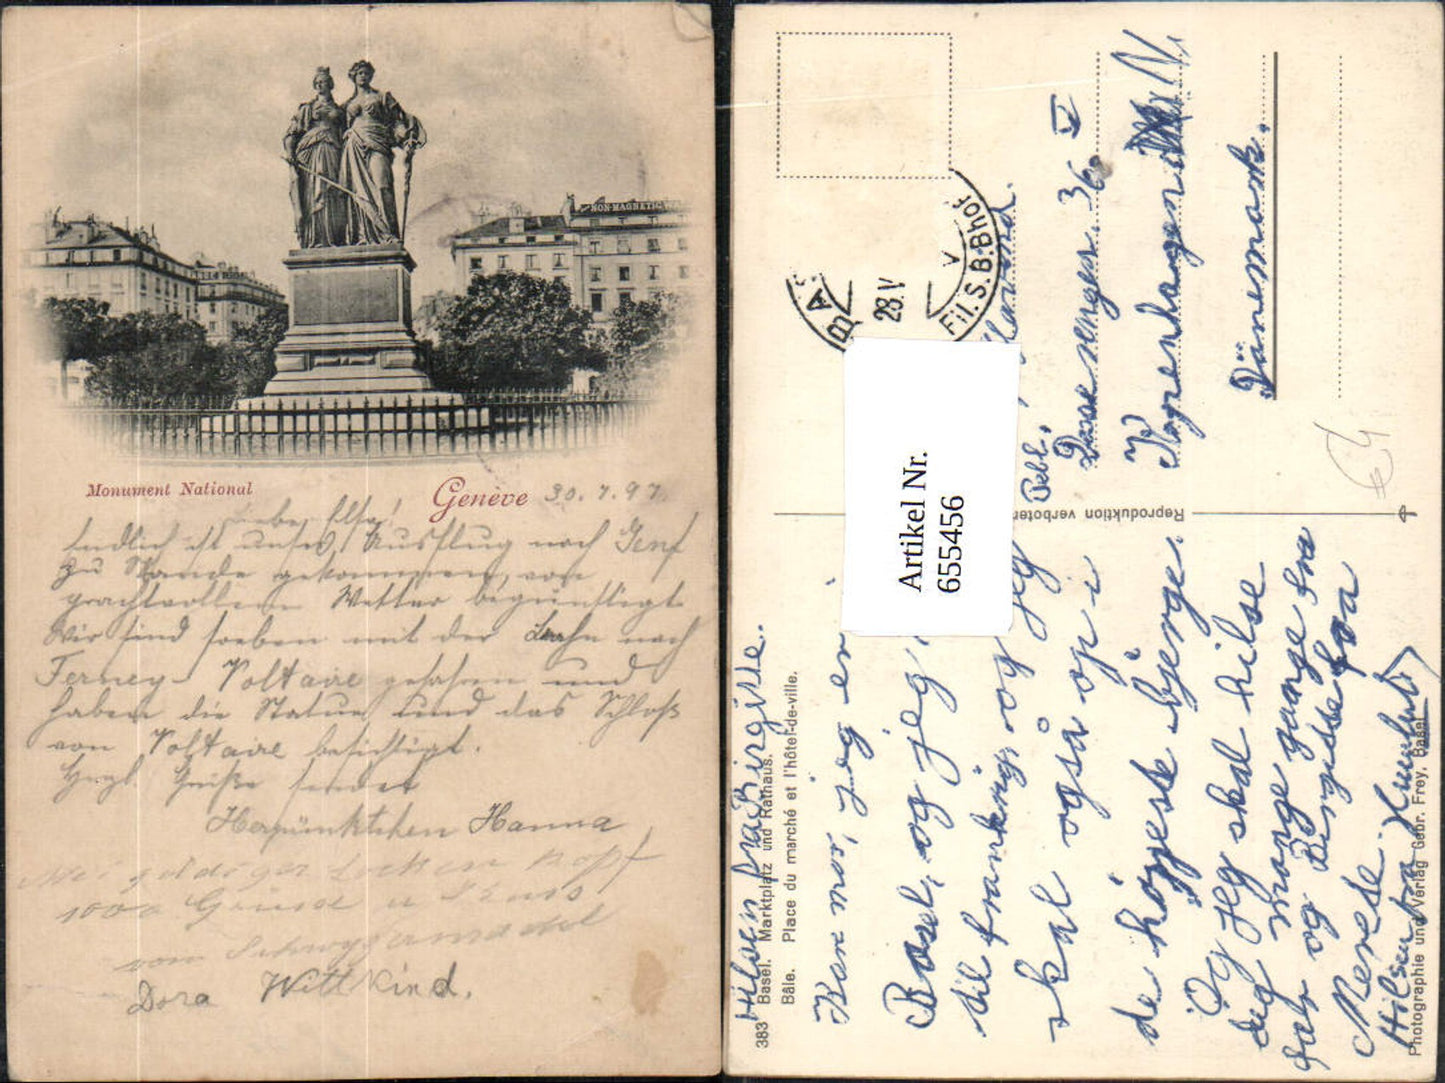 NON-MAGNETIC
Monument National
Genève 30.7.97
Liebe Elsa!
Endlich ist unser Ausflug nach Genf
zu Stande gekommen, vom
prachtvollen Wetter begünstigt.
Wir sind soeben mit der Bahn nach
Ferney-Voltaire gefahren und
haben die Statue und das Schloß
von Voltaire besichtigt.
Herzl. Grüße sendet
Hanna
goldiger Locken Kopf
1000 Grüße u Kuss
vom
Dora Wittkind.
BAS
28.V
V
Fil.S.B.Bhof
Artikel Nr.
655456
36 V
Kopenhagen N.
Dänemark.
Reproduktion verboten
Hilsen fra Birgitte.
383 Basel. Marktplatz und Rathaus.
Bâle. Place du marché et l'hôtel-de-ville.
Kære mor, jeg er i
Basel, og jeg
til frankrig, og jeg
skal også op i
de højeste bjerge.
Og jeg skal hilse
dig mange gange fra
far og Birgitte fra
Merete.
Hilsen fra
Photographie und Verlag Gebr. Frey, Basel